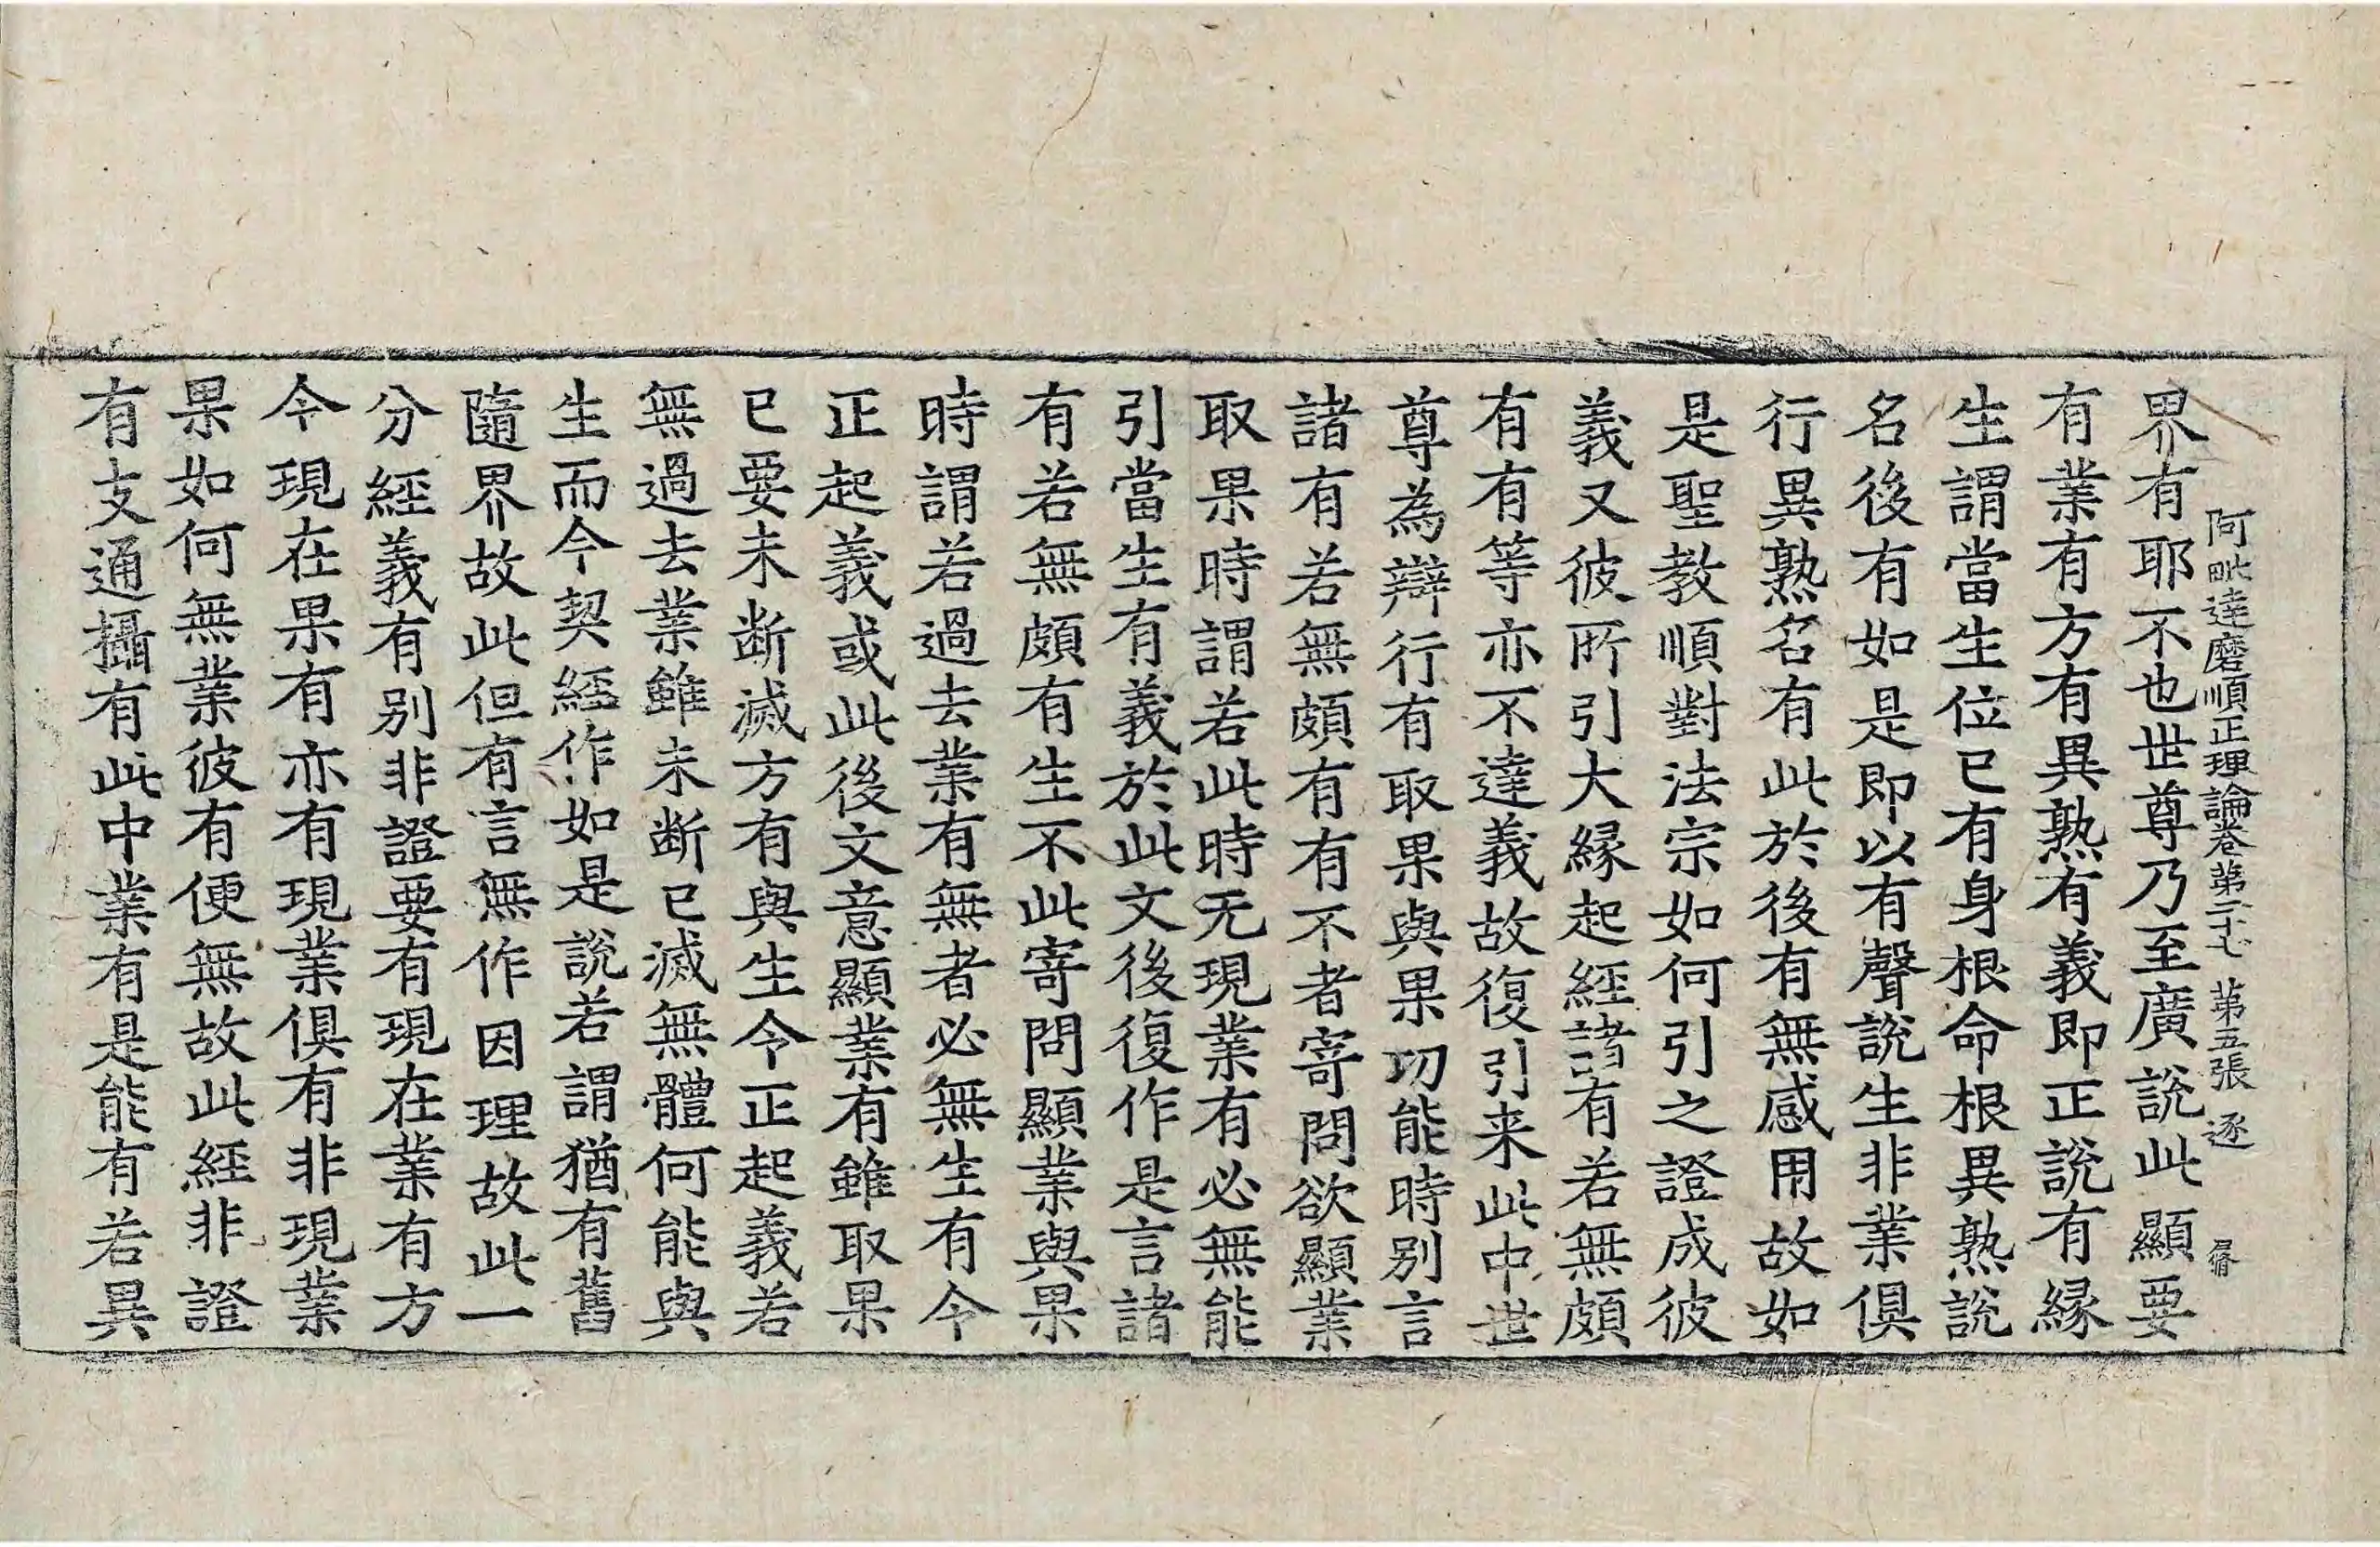 阿毗達磨順正理論卷第二十七 第五張 逐
界有耶不也世尊乃至廣說此顯要
有業有方有異熟有義即正說有緣
生謂當生位已有身根命根異熟說
名後有如是即以有聲說生非業俱
行異熟名有此於後有無感用故如
是聖教順對法宗如何引之證成彼
義又彼所引大緣起經諸有若無頗
有有等亦不達義故復引来此中世
尊為辯行有取果與果功能時別言
諸有若無頗有有不者寄問欲顯業
取果時謂若此時无現業有必無能
引當生有義於此文後復作是言諸
有若無頗有生不此寄問顯業與果
時謂若過去業有無者必無生有今
正起義或此後文意顯業有雖取果
已要未断滅方有與生今正起義若
無過去業雖未断已滅無體何能與
生而今契經作如是說若謂猶有舊
隨界故此但有言無作因理故此一
分經義有別非證要有現在業有方
今現在果有亦有現業俱有非現業
果如何無業彼有便無故此經非證
有支通攝有此中業有是能有若異